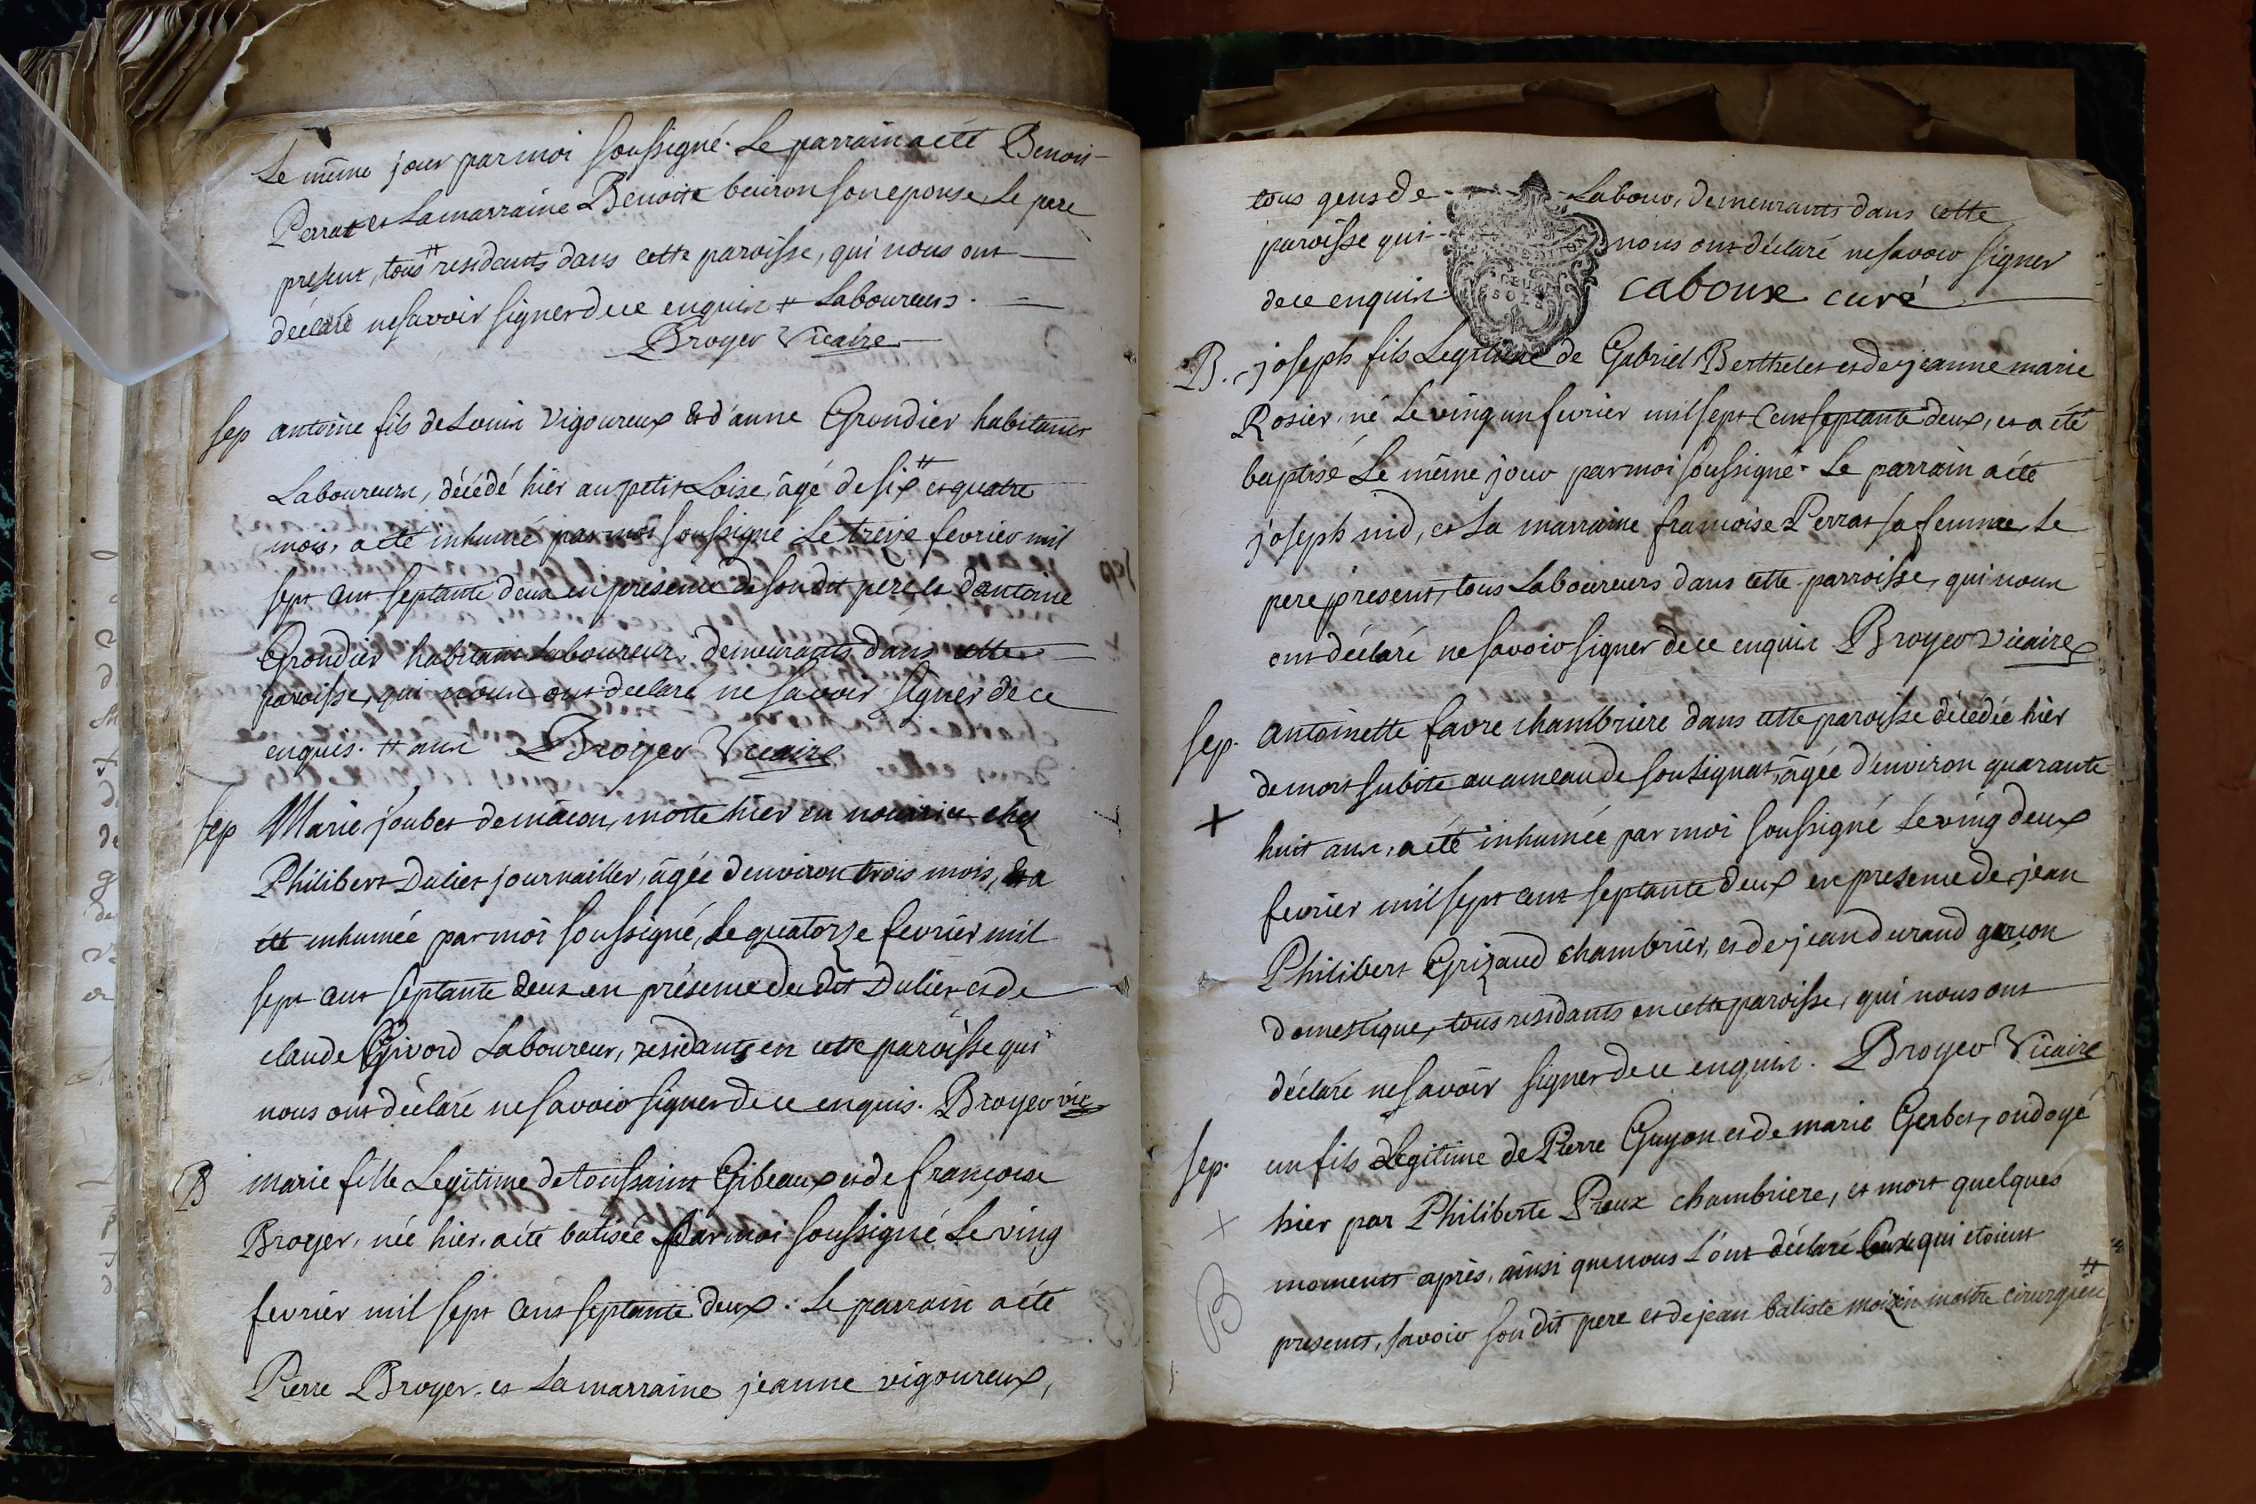 Le même jour par moi soussigné. Le parrain a été Benoit
Perrat et La marraine Benoite buiron son epouse, Le pere
present, tous # residants dans cette paroisse, qui nous ont
déclaré ne savoir signer de ce enquis # Laboureurs.
Broyer Vicaire
sep antoine fils de Louis Vigoureux & d'anne Grondier habitants
Laboureurs, décédé hier au petit Loise, âgé de six # et quatre
mois, a été inhumé par moi soussigné Le treize fevrier mil
sept cent septante deux en presence de son dit pere et d'antoine
Grondier habitant Laboureur, demeurants dans cette
paroisse, qui nous ont declaré ne savoir signer de ce
enquis. # ans Broyer Vicaire
sep Marie joubet de mâcon, morte hier en nourrice chez
Philibert Dulier journailler, âgée d'environ trois mois, & a
été inhumée par moi soussigné, Le quatorze fevrier mil
sept cent septante deux en présence du dit Dulier et de
claude Givord Laboureur, residants en cette paroisse qui
nous ont déclaré ne savoir signer de ce enquis. Broyer vic
B marie fille Legitime de toussaint Gibeaux et de françoise
Broyer, née hier, a été batisée par moi soussigné Le ving
fevrier mil sept cent septante deux. Le parrain a été
Pierre Broyer, et La marraine jeanne vigoureux,
tous gens de Labour, demeurants dans cette
paroisse qui nous ont déclaré ne savoir signer
de ce enquis. caboux curé
B. joseph fils Legitime de Gabriel Berthelet et de jeanne marie
Rosier, né Le ving un fevrier mil sept cent septante deux, et a été
baptisé Le même jour par moi soussigné. Le parrain a été
joseph nid, et La marraine francoise Perrat sa femme, Le
pere present, tous Laboureurs dans cette parroisse, qui nous
ont déclaré ne savoir signer de ce enquis Broyer Vicaire
sep. antoinette favre chambriere dans cette paroisse décédée hier
de mort subite au ameau de soutignat, âgée d'environ quarante
huit ans, a été inhumée par moi soussigné Le ving deux
fevrier mil sept cent septante deux en presence de jean
Philibert Grizaud chambrier, et de jean durand garçon
domestique, tous residants en cette paroisse, qui nous ont
déclaré ne savoir signer de ce enquis. Broyer Vicaire
sep. un fils Legitime de Pierre Guyon et de marie Gerbet, ondoyé
hier par Philiberte Preux chambriere, et mort quelques
moments après, ainsi que nous L'ont déclaré Ceux qui etoient
B presents, savoir son dit pere et de jean batiste moizin maitre cirurgien #